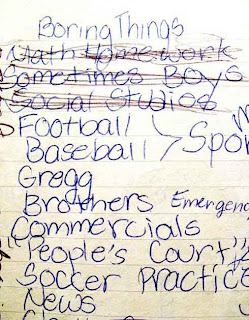 Boring Things
Math Homework
Sometimes Boys
Social Studies
Football
Baseball
Gregg
Brothers Emergenc
Commercials
"People's Court"
Soccer Practice
News